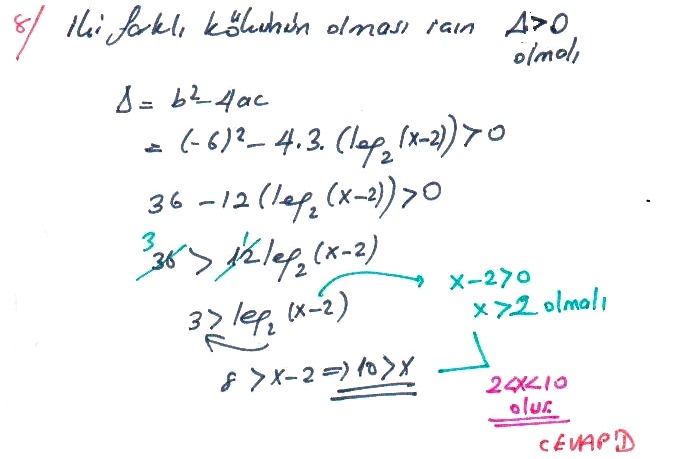 8/ İki farklı kökünün olması için Δ>0
olmalı
Δ = b²-4ac
= (-6)² - 4.3.(log₂(x-2)) > 0
36 - 12(log₂(x-2)) > 0
3 1
36 > 12 log₂(x-2)
x-2>0
3 > log₂(x-2)
x>2 olmalı
8 > x-2 => 10 > x
2<x<10
olur.
CEVAP D